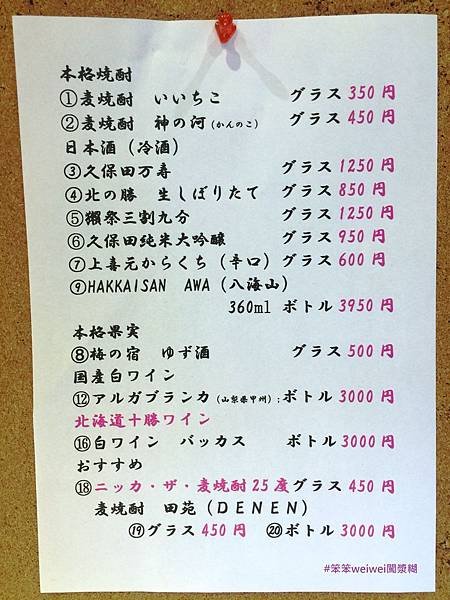 本格焼酎
①麦焼酎　いいちこ　グラス 350 円
②麦焼酎　神の河(かんのこ)　グラス 450 円
日本酒（冷酒）
③久保田万寿　グラス 1250 円
④北の勝　生しぼりたて　グラス 850 円
⑤獺祭三割九分　グラス 1250 円
⑥久保田純米大吟醸　グラス 950 円
⑦上喜元からくち（辛口）グラス 600 円
⑨HAKKAISAN　AWA（八海山）
360ml ボトル 3950 円
本格果実
⑧梅の宿　ゆず酒　グラス 500 円
国産白ワイン
⑫アルガブランカ(山梨県甲州)：ボトル 3000 円
北海道十勝ワイン
⑯白ワイン　バッカス　ボトル 3000 円
おすすめ
⑱ニッカ・ザ・麦焼酎 25 度グラス 450 円
麦焼酎　田苑（DENEN）
⑲グラス 450 円　⑳ボトル 3000 円
#笨笨weiwei闖漿糊